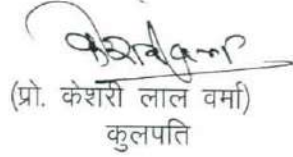 (प्रो. केशरी लाल वर्मा)
कुलपति